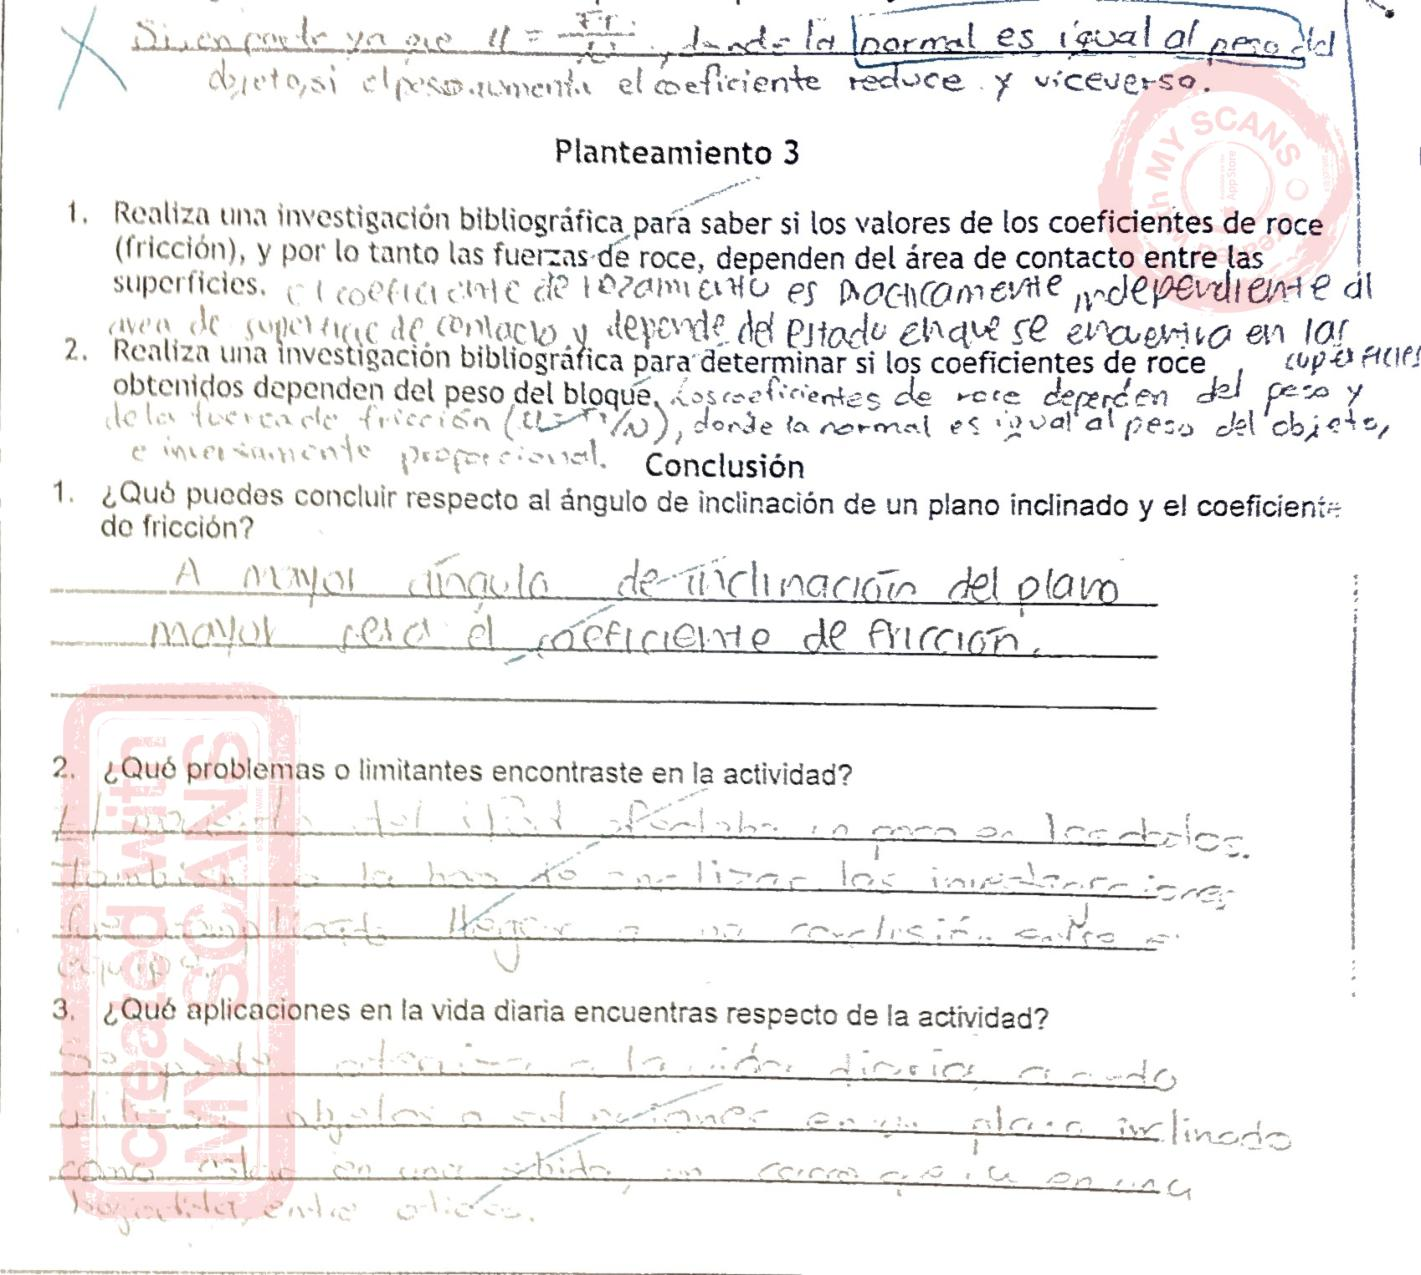 Si, en parte ya que μ = Fr/N, donde la normal es igual al peso del
objeto, si el peso aumenta el coeficiente reduce y viceversa.
Planteamiento 3
1. Realiza una investigación bibliográfica para saber si los valores de los coeficientes de roce
(fricción), y por lo tanto las fuerzas de roce, dependen del área de contacto entre las
superficies. el coeficiente de rozamiento es practicamente independiente al
area de superficie de contacto y depende del estado en que se encuentra en las
superficies
2. Realiza una investigación bibliográfica para determinar si los coeficientes de roce
obtenidos dependen del peso del bloque. Los coeficientes de roce dependen del peso y
de la fuerza de fricción (μ = Fr/N), donde la normal es igual al peso del objeto,
e inversamente proporcional.
Conclusión
1. ¿Qué puedes concluir respecto al ángulo de inclinación de un plano inclinado y el coeficiente
de fricción?
A mayor ángulo de inclinación del plano
mayor será el coeficiente de fricción.
2. ¿Qué problemas o limitantes encontraste en la actividad?
El del afectaba un poco en los
También a la de analizar las investigaciones
fue complicado llegar a una conclusión entre el
equipo.
3. ¿Qué aplicaciones en la vida diaria encuentras respecto de la actividad?
Se puede a la vida diaria cuando
objetos o en un plano inclinado
como en una subida, un carro que va en una
bajadita, entre otros.
created with
MY SCANS
MY SCANS
App Store